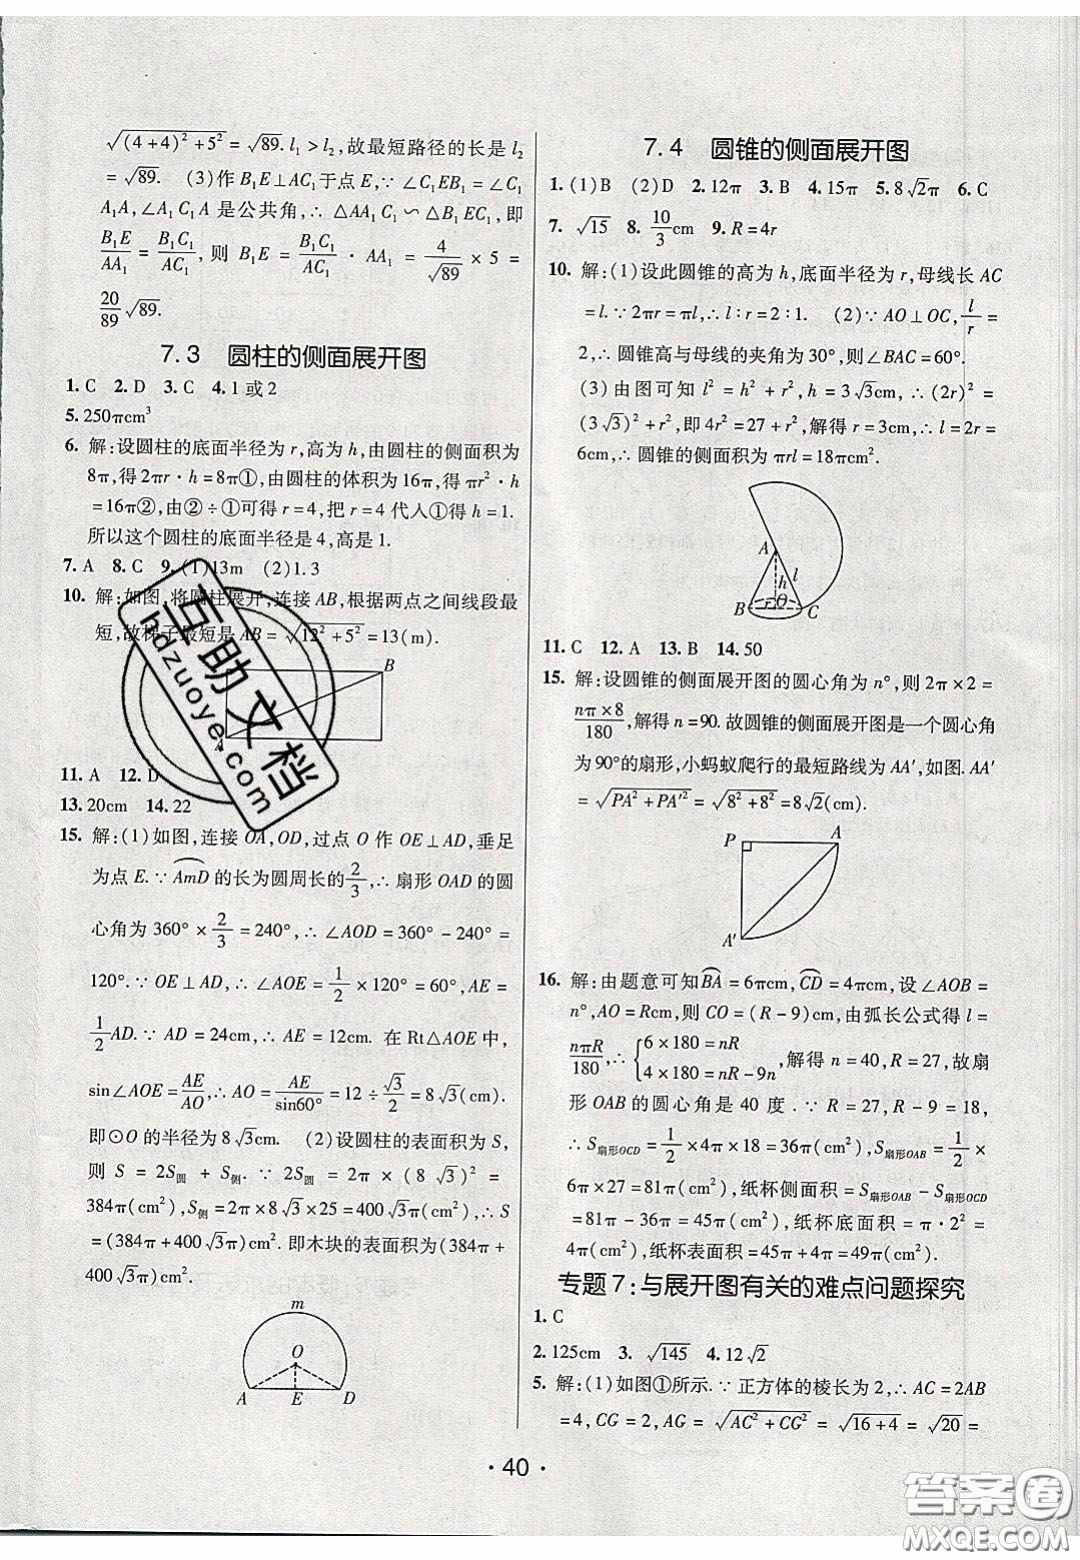 √(4+4)²+5² = √89. l₁ > l₂, 故最短路径的长是 l₂
= √89. (3)作 B₁E⊥AC₁于点 E,∵∠C₁EB₁ = ∠C₁
A₁A,∠A₁C₁A 是公共角,∴△AA₁C₁∽△B₁EC₁,即
B₁E/AA₁ = B₁C₁/AC₁, 则 B₁E = B₁C₁/AC₁ · AA₁ = 4/√89 × 5 =
20/89 √89.
7.3 圆柱的侧面展开图
1. C 2. D 3. C 4. 1 或 2
5. 250πcm³
6. 解:设圆柱的底面半径为 r,高为 h,由圆柱的侧面积为
8π,得 2πr·h = 8π①,由圆柱的体积为 16π,得 πr²·h
= 16π②,由②÷①可得 r = 4,把 r = 4 代入①得 h = 1.
所以这个圆柱的底面半径是 4,高是 1.
7. A 8. C 9. (1)13m (2)1.3
10. 解:如图,将圆柱展开,连接 AB,根据两点之间线段最
短,故梯子最短是 AB = √12²+5² = 13(m).
B
11. A 12. D
13. 20cm 14. 22
15. 解:(1)如图,连接 OA,OD,过点 O 作 OE⊥AD,垂足
为点 E. ∵ AmD 的长为圆周长的 2/3,∴扇形 OAD 的圆
心角为 360° × 2/3 = 240°,∴∠AOD = 360° - 240° =
120°. ∵OE⊥AD,∴∠AOE = 1/2 × 120° = 60°, AE =
1/2 AD. ∵AD = 24cm,∴AE = 12cm. 在 Rt△AOE 中,
sin∠AOE = AE/AO,∴AO = AE/sin60° = 12 ÷ √3/2 = 8√3 cm.
即⊙O 的半径为 8√3 cm. (2)设圆柱的表面积为 S,
则 S = 2S圆 + S侧. ∵ 2S圆 = 2π × (8√3)² =
384π(cm²),S侧 = 2π×8√3×25 = 400√3π(cm²),∴S
= (384π+400√3π)cm². 即木块的表面积为(384π+
400√3π)cm².
m
O
A E D
7.4 圆锥的侧面展开图
1. (1)B (2)D 2. 12π 3. B 4. 15π 5. 8√2π 6. C
7. √15 8. 10/3 cm 9. R = 4r
10. 解:(1)设此圆锥的高为 h,底面半径为 r,母线长 AC
= l. ∵2πr = πl,∴l∶r = 2∶1. (2)∵AO⊥OC, l/r =
2,∴圆锥高与母线的夹角为 30°,则∠BAC = 60°.
(3)由图可知 l² = h² + r², h = 3√3 cm,∴(2r)² =
(3√3)² + r²,即 4r² = 27 + r²,解得 r = 3cm,∴l = 2r =
6cm,∴圆锥的侧面积为 πrl = 18πcm².
A
h l
B r O C
11. C 12. A 13. B 14. 50
15. 解:设圆锥的侧面展开图的圆心角为 n°,则 2π×2 =
nπ×8/180,解得 n = 90. 故圆锥的侧面展开图是一个圆心角
为 90°的扇形,小蚂蚁爬行的最短路线为 AA′,如图. AA′
= √PA²+PA′² = √8²+8² = 8√2(cm).
P A
A′
16. 解:由题意可知 BA = 6πcm, CD = 4πcm,设∠AOB =
n°,AO = Rcm,则 CO = (R-9)cm,由弧长公式得 l =
nπR/180,∴{6×180 = nR 4×180 = nR-9n,解得 n = 40, R = 27,故扇
形 OAB 的圆心角是 40 度. ∵R = 27, R-9 = 18,
∴S扇形OCD = 1/2 ×4π×18 = 36π(cm²), S扇形OAB = 1/2 ×
6π×27 = 81π(cm²),纸杯侧面积 = S扇形OAB - S扇形OCD
= 81π-36π = 45π(cm²),纸杯底面积 = π·2² =
4π(cm²),纸杯表面积 = 45π+4π = 49π(cm²).
专题 7:与展开图有关的难点问题探究
1. C
2. 125cm 3. √145 4. 12√2
5. 解:(1)如图①所示. ∵正方体的棱长为 2,∴AC = 2AB
= 4, CG = 2, AG = √AC²+CG² = √16+4 = √20 =
· 40 ·
互助文档
hdzuoye.com
答案圈
MXQE.COM